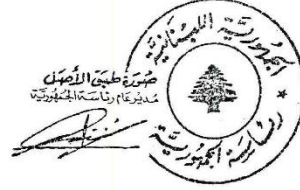 صورة طبق الأصل
مدير عام رئاسة الجمهورية
الجمهورية اللبنانية
رئاسة الجمهورية